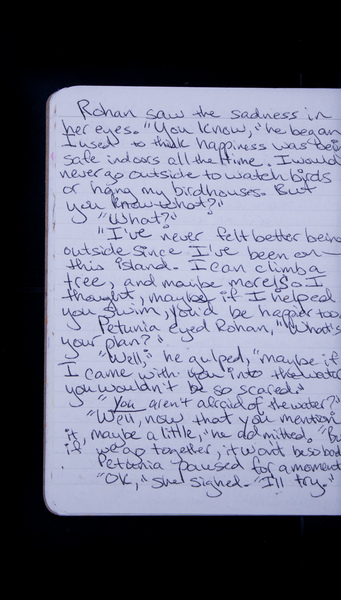 Rohan saw the sadness in
her eyes. "You know," he began
I used to think happiness was bein
safe indoors all the time. I would
never go outside to watch birds
or hang my birdhouses. But
you know what?"
"What?"
"I've never felt better being
outside since I've been on
this island. I can climb a
tree, and maybe more! So I
thought, maybe if I helped
you swim, you'd be happier too.
Petunia eyed Rohan, "What's
your plan?"
"Well," he gulped, "maybe if
I came with you into the water
you wouldn't be so scared."
"You aren't afraid of the water?"
"Well, now that you mention
it, maybe a little," he admitted. "Bu
if we go together, it won't be so bad
Petunia paused for a moment
"OK," she sighed. "I'll try."